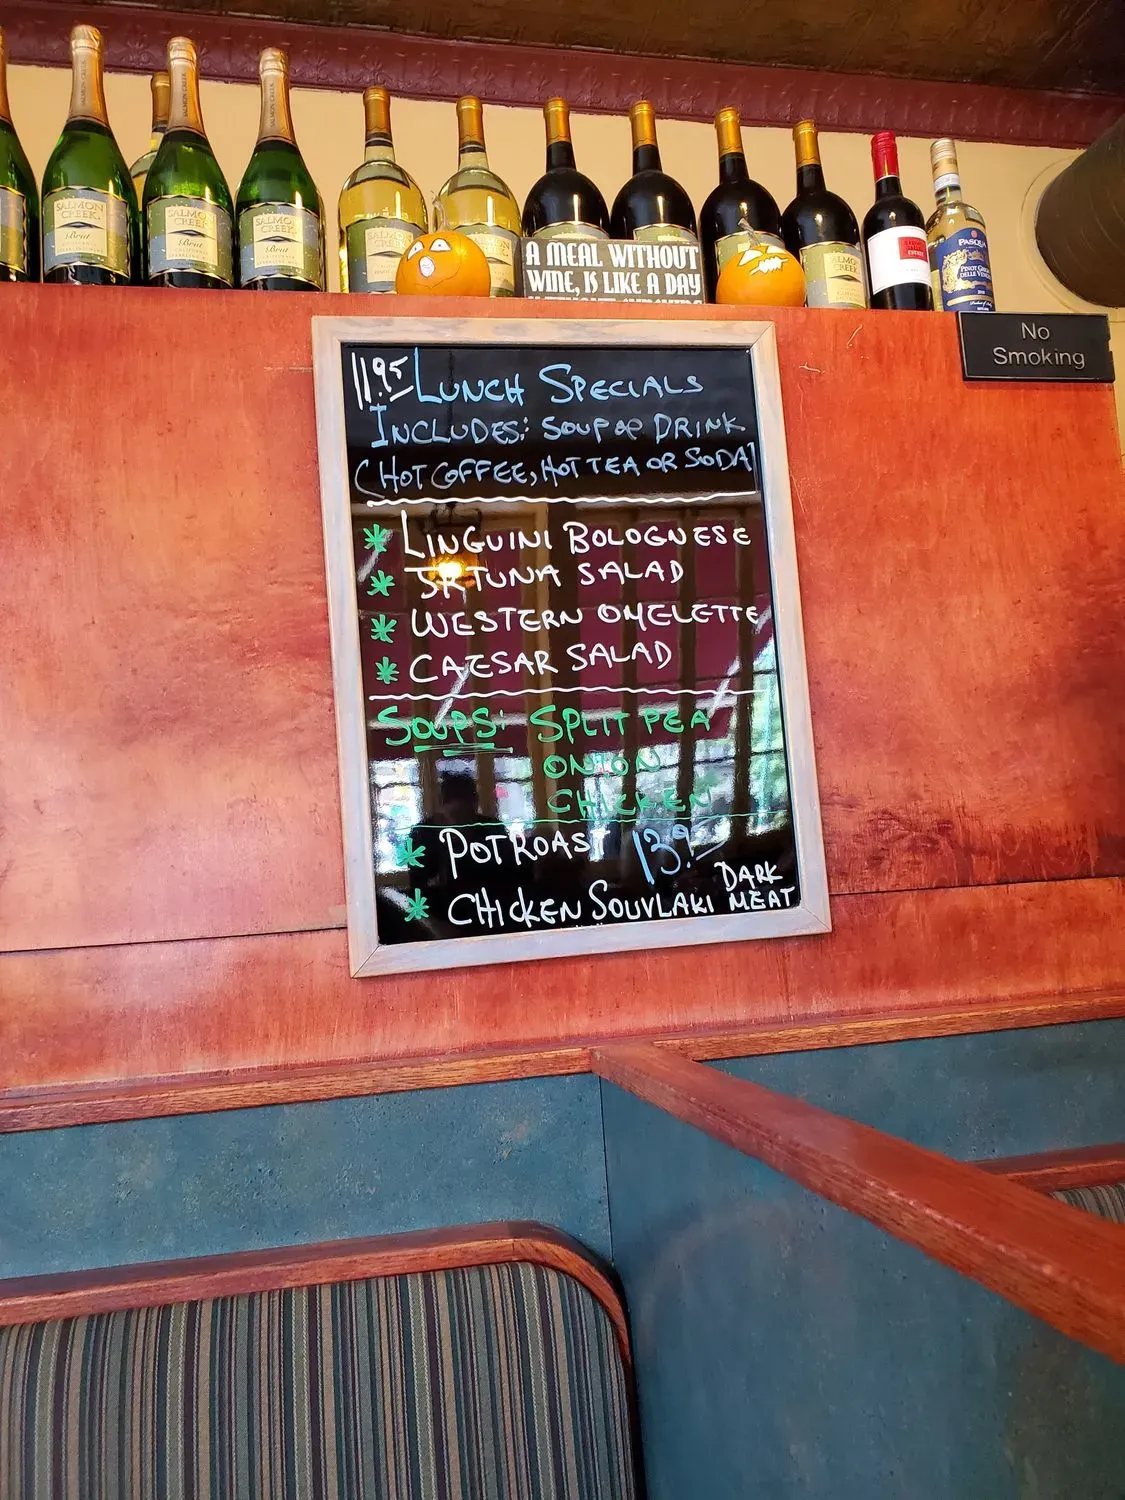 SALMON CREEK
SALMON CREEK
SALMON CREEK
Brut
SALMON CREEK
Brut
SALMON CREEK
Brut
SALMON CREEK
SALMON CREEK
PASQUA
PINOT GRIGIO
DELLE VENEZIE
A MEAL WITHOUT
WINE, IS LIKE A DAY
No
Smoking
11.95 LUNCH SPECIALS
INCLUDES: SOUP OR DRINK
(HOT COFFEE, HOT TEA OR SODA)
* LINGUINI BOLOGNESE
* TUNA SALAD
* WESTERN OMELETTE
* CAESAR SALAD
SOUPS: SPLIT PEA
ONION
CHICKEN
* POT ROAST 13.95
* CHICKEN SOUVLAKI DARK MEAT